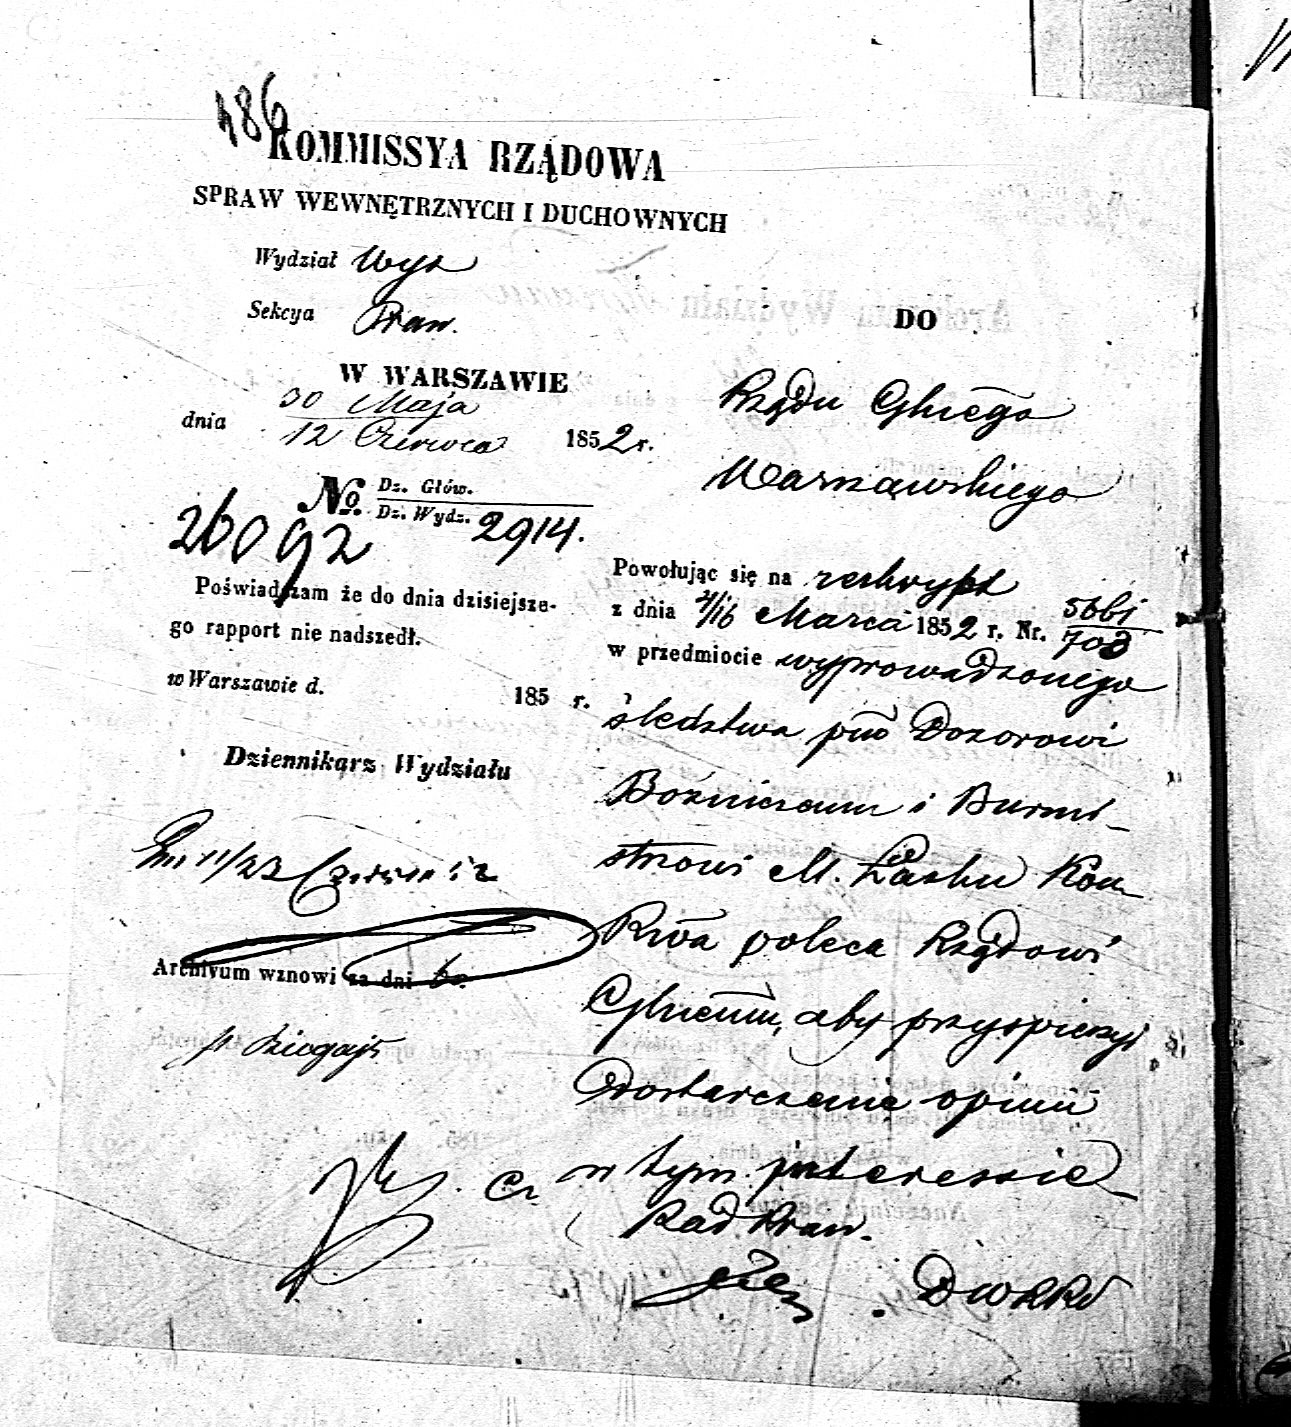 186
KOMMISSYA RZĄDOWA
SPRAW WEWNĘTRZNYCH I DUCHOWNYCH
Wydział Wyz
Sekcya Praw.
W WARSZAWIE
dnia 30 Maja
12 Czerwca 1852 r.
No. Dz. Głów.
Dz. Wydz. 2914.
26092
Poświadczam że do dnia dzisiejsze-
go rapport nie nadszedł.
w Warszawie d. 185 r.
Dziennikarz Wydziału
11/23 Czerwca 52
Archivum wznowi za dni 60.
DO
Rządu Gbnego
Warszawskiego
Powołując się na reskrypt
z dnia 4/16 Marca 1852 r. Nr. 5661/703
w przedmiocie wyprowadzonego
śledztwa pko Dozorowi
Bożniczemu i Burmi-
strzowi M. Łasku Kom-
Rwa poleca Rządowi
Gbnemu, aby przyspieszył
dostarczenie opinii
w tym interessie
Rad. Praw.